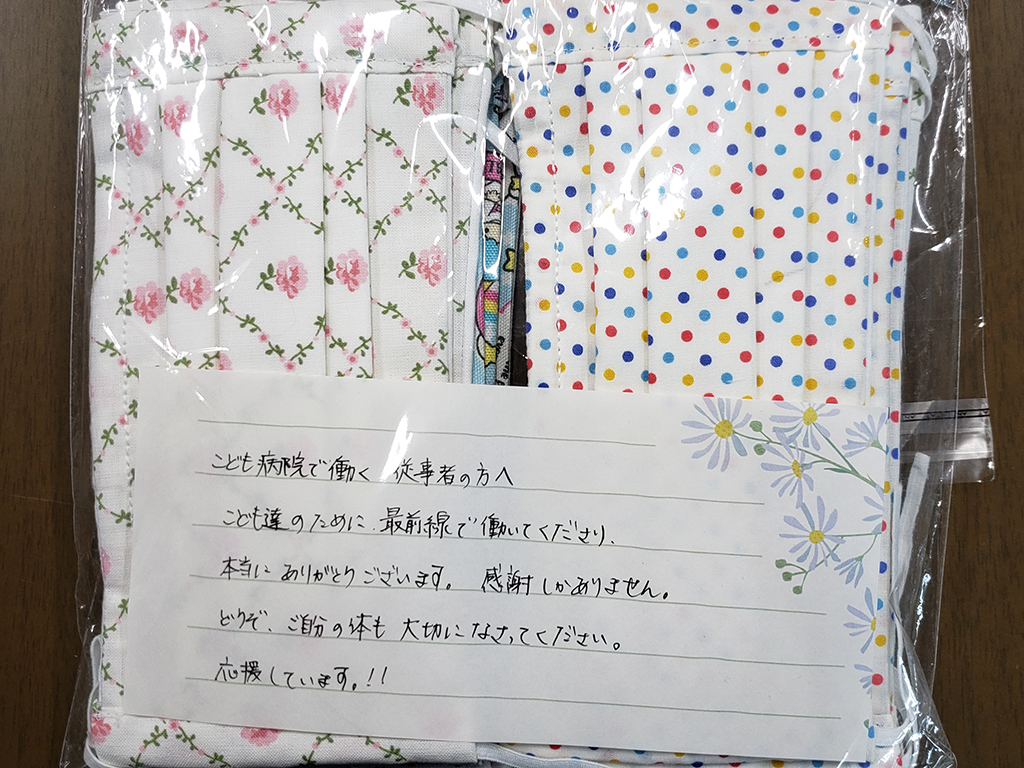 こども病院で働く 従事者の方へ
こども達のために、最前線で働いてくださり、
本当にありがとうございます。 感謝しかありません。
どうぞ、ご自分の体も 大切になさってください。
応援しています。!!